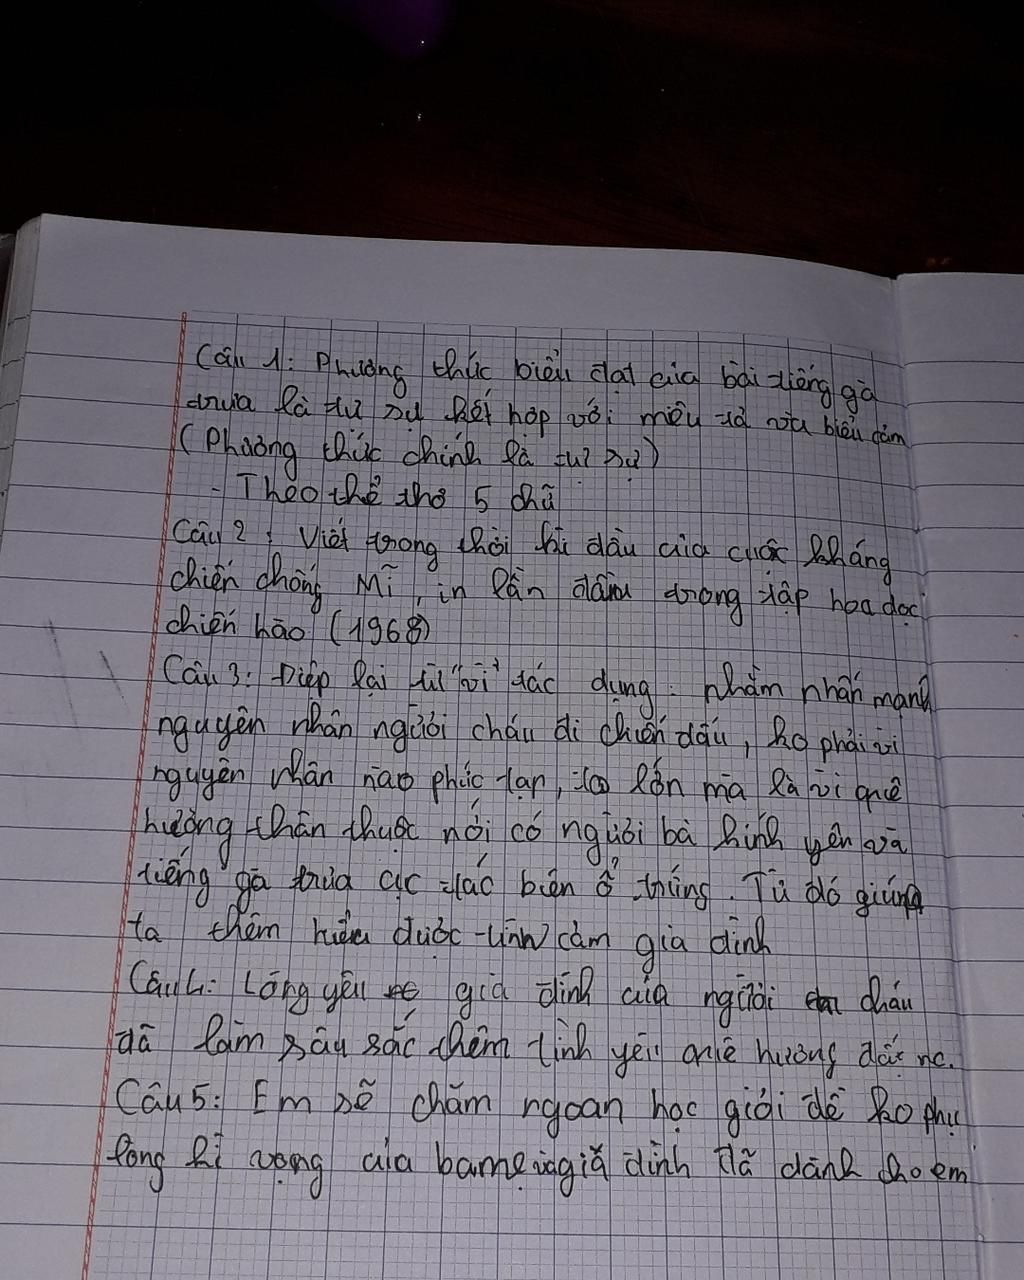 Câu 1: Phương thức biểu đạt của bài tiếng gà
trưa là tự sự kết hợp với miêu tả và biểu cảm
(Phương thức chính là tự sự)
- Theo thể thơ 5 chữ
Câu 2: Viết trong thời kì đầu của cuộc kháng
chiến chống Mĩ, in lần đầu trong tập hoa dọc
chiến hào (1968)
Câu 3: Điệp lại từ "vì" tác dụng: nhằm nhấn mạnh
nguyên nhân người cháu đi chiến đấu, ko phải vì
nguyên nhân nào phức tạp, to lớn mà là vì quê
hương thân thuộc nơi có người bà kính yên và
tiếng gà trưa cục tác bên ổ trứng. Từ đó giúng
ta thêm hiểu được tình cảm gia đình
Câu 4: Lòng yêu gia đình của người cháu
đã làm sâu sắc thêm tình yêu quê hương đất nc.
Câu 5: Em sẽ chăm ngoan học giỏi để ko phụ
lòng kì vọng của ba mẹ và gia đình đã dành cho em